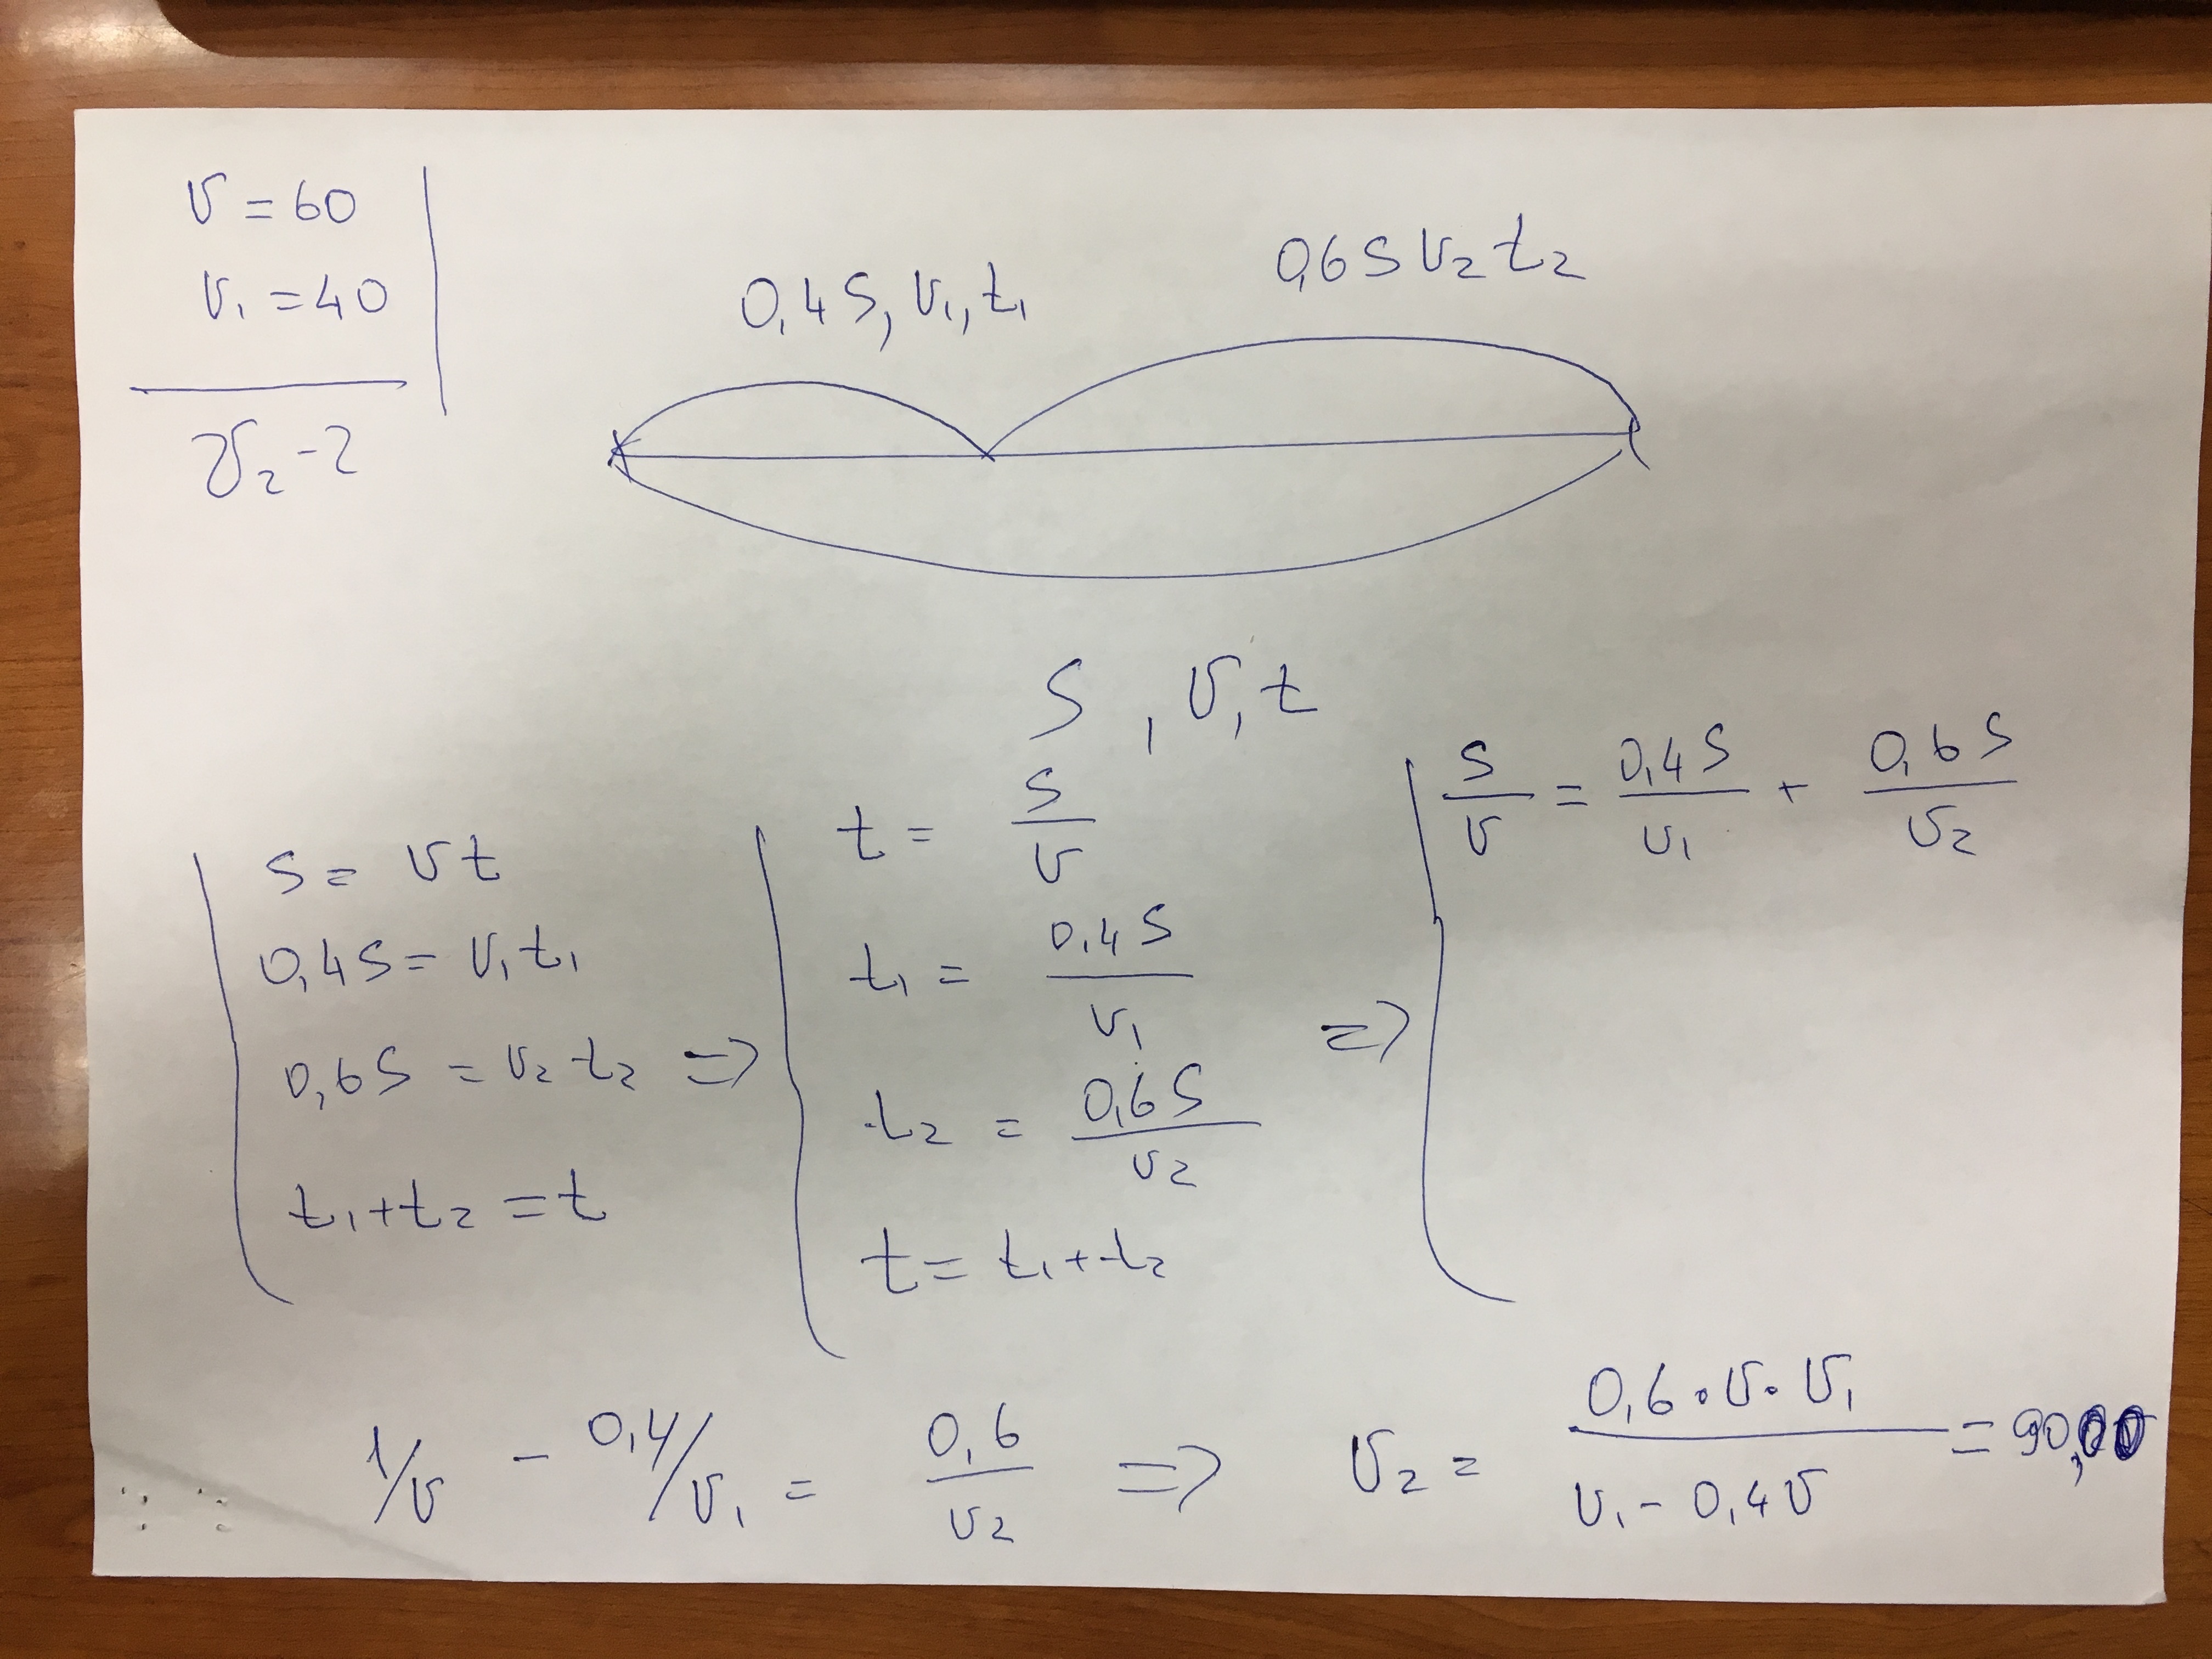 v = 60
v₁ = 40
v₂ - ?
0,4 S, v₁, t₁
0,6 S v₂ t₂
S, v, t
S = v t
0,4 S = v₁ t₁
0,6 S = v₂ t₂ =>
t₁ + t₂ = t
t = S/v
t₁ = 0,4 S/v₁
t₂ = 0,6 S/v₂
t = t₁ + t₂
=>
S/v = 0,4 S/v₁ + 0,6 S/v₂
1/v - 0,4/v₁ = 0,6/v₂ => v₂ = 0,6 · v · v₁/v₁ - 0,4 v = 90,00